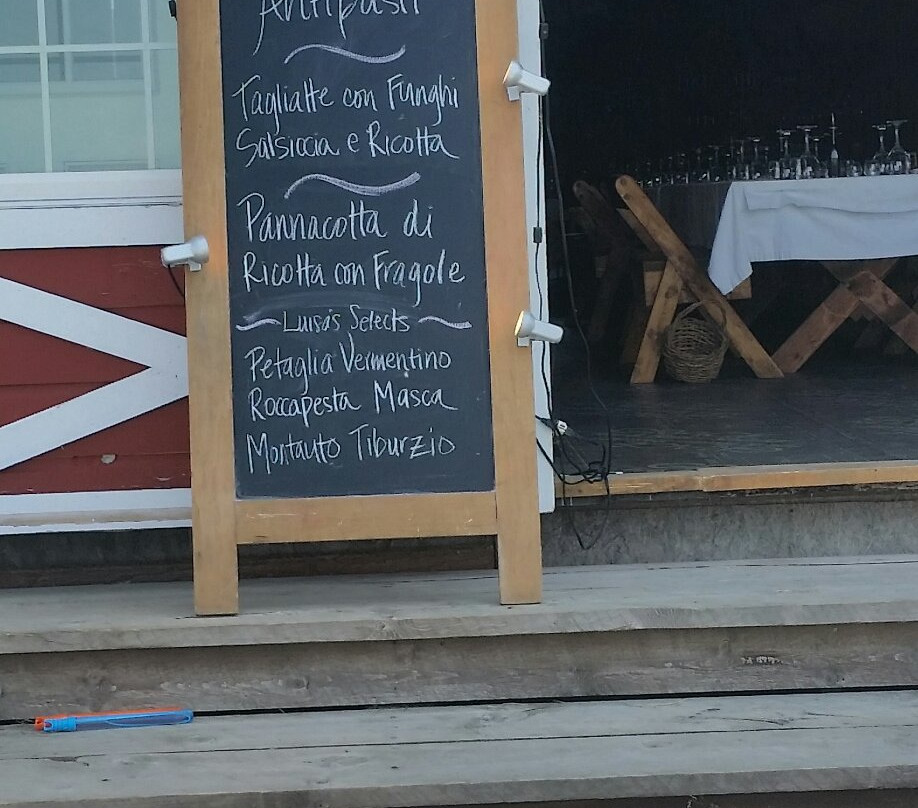 Antipasti
Tagliatte con Funghi
Salsiccia e Ricotta
Pannacotta di
Ricotta con Fragole
Luisa's Selects
Petaglia Vermentino
Roccapesta Masca
Montauto Tiburzio